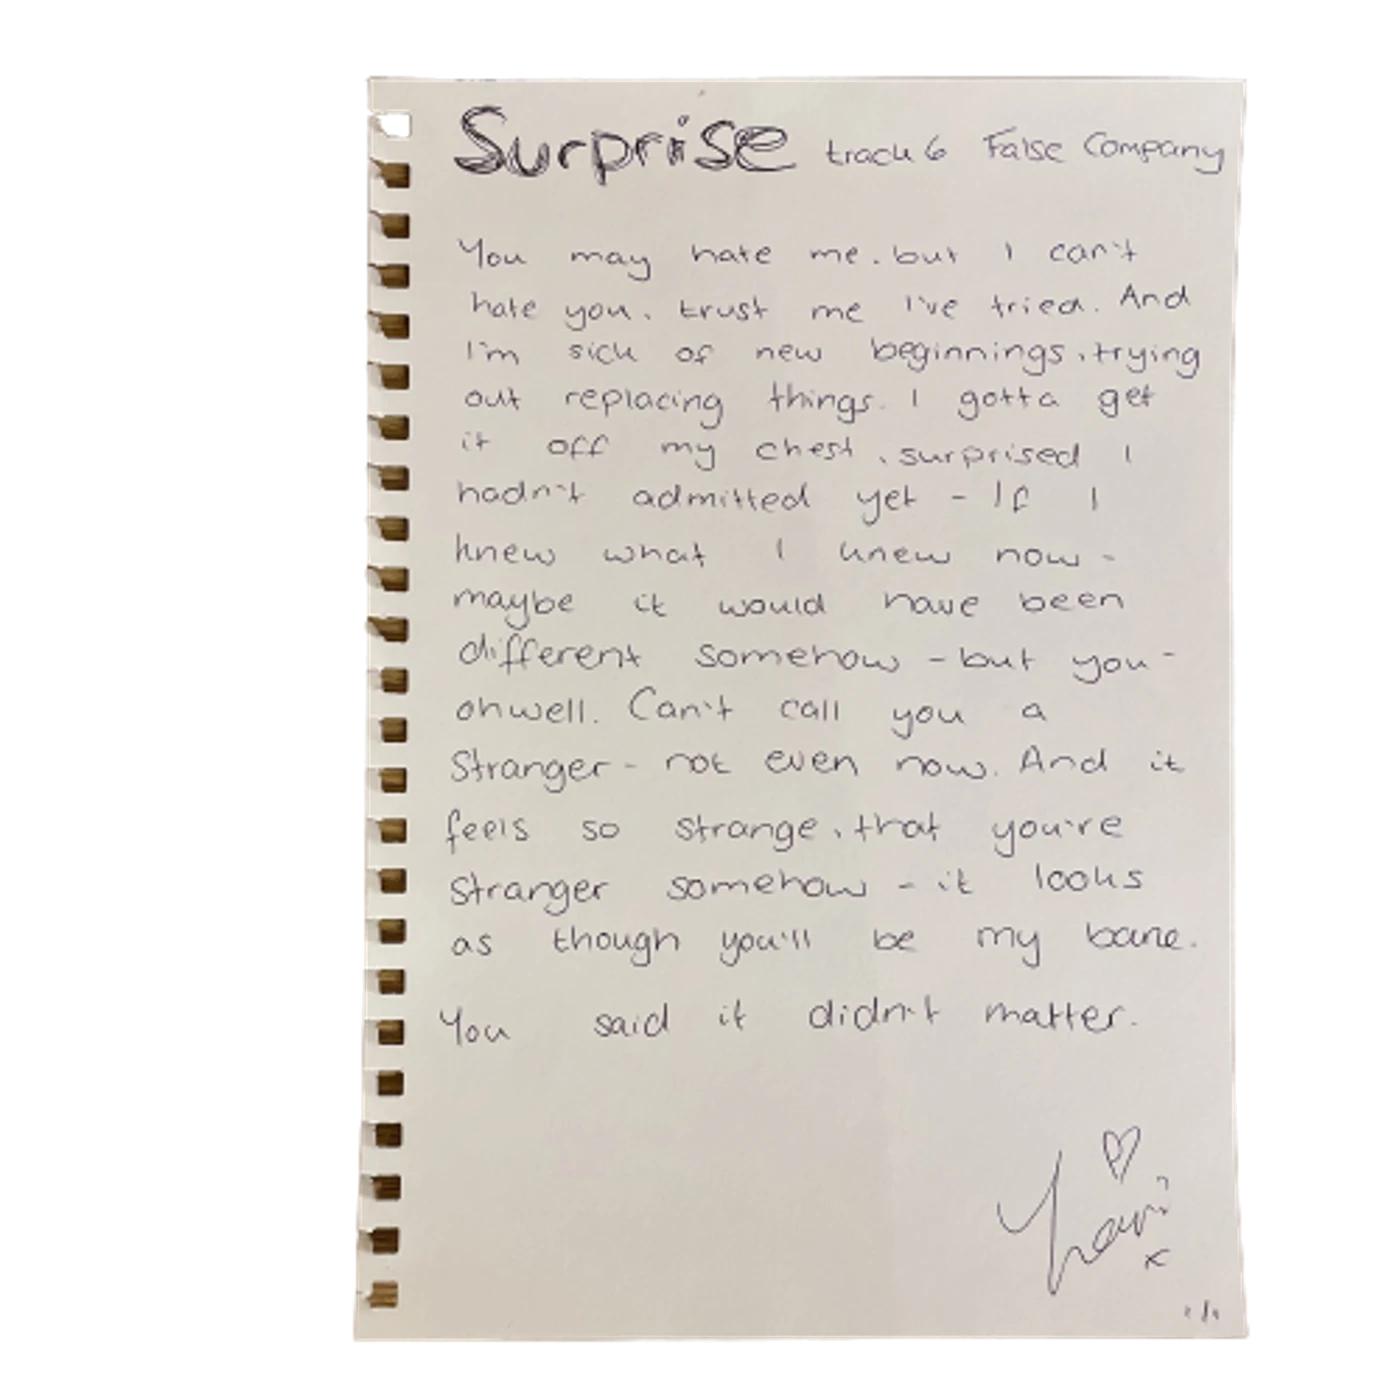 Surprise track 6 False Company
You may hate me. but I can't
hate you. trust me I've tried. And
I'm sick of new beginnings, trying
out replacing things. I gotta get
it off my chest, surprised I
hadn't admitted yet - If I
knew what I knew now -
maybe it would have been
different somehow - but you -
ohwell. Can't call you a
Stranger - not even now. And it
feels so strange, that you're
stranger somehow - it looks
as though you'll be my bane.
You said it didn't matter.
x